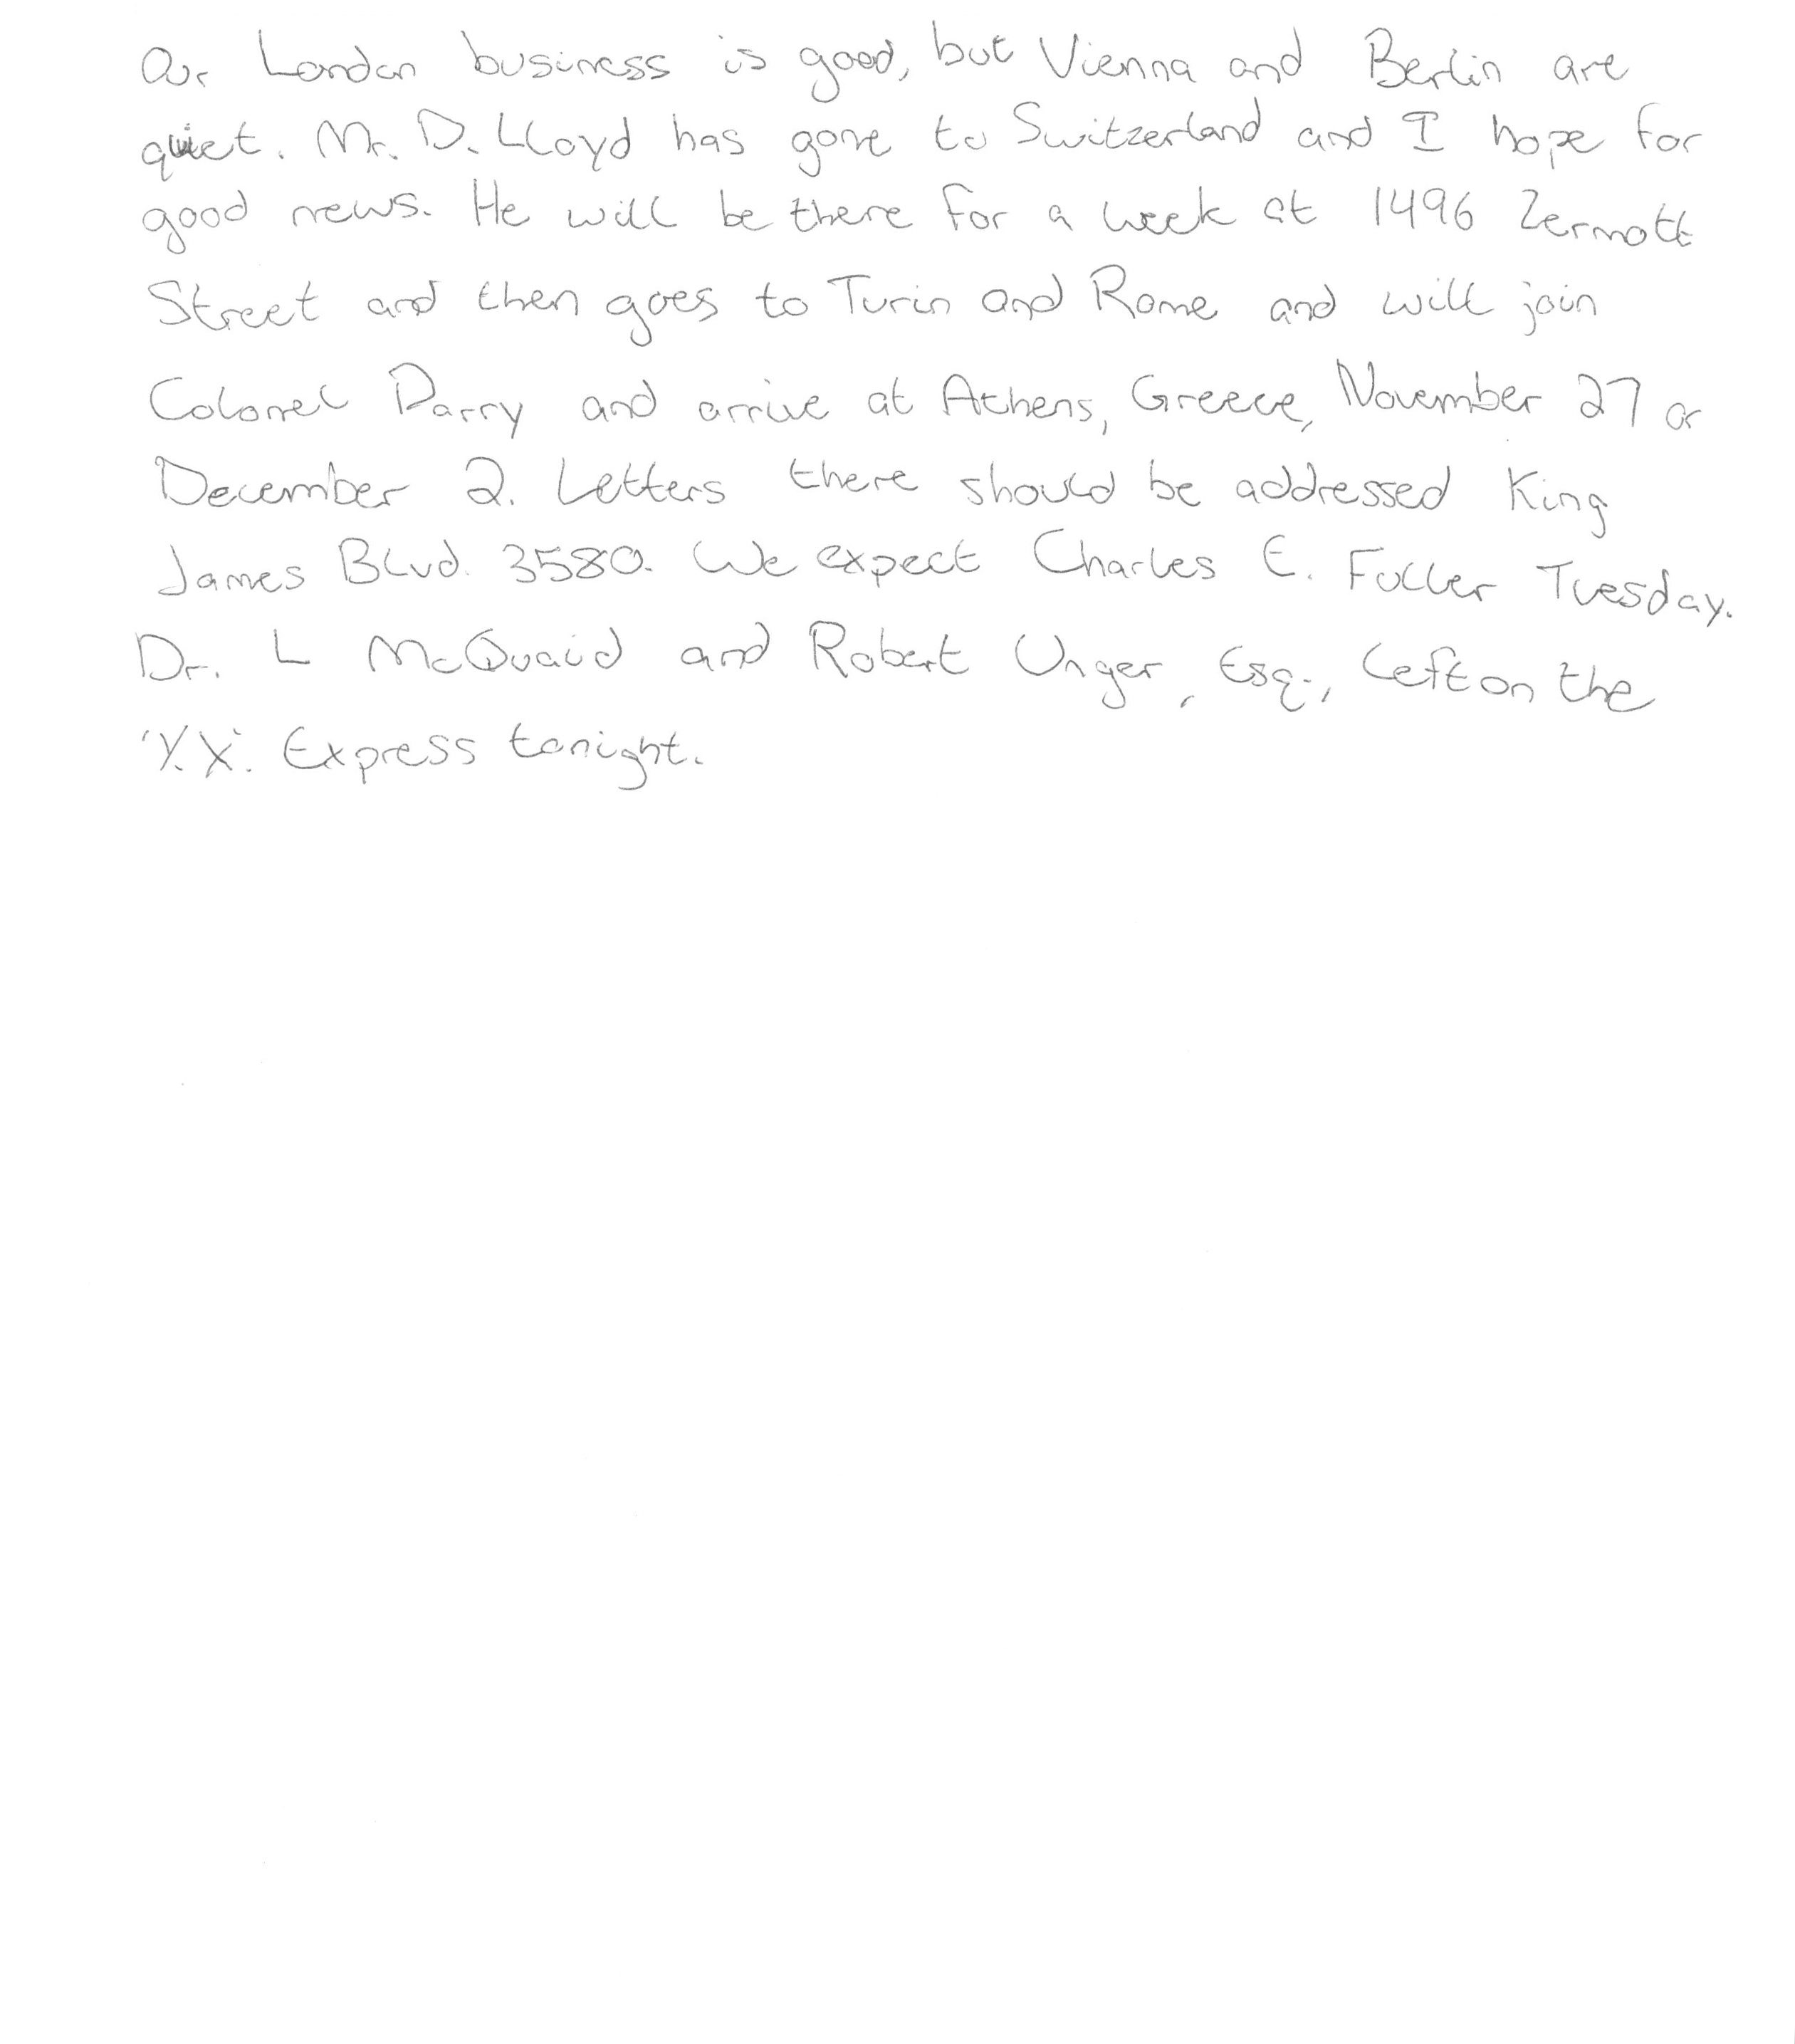 Our London business is good, but Vienna and Berlin are
quiet. Mr. D. Lloyd has gone to Switzerland and I hope for
good news. He will be there for a week at 1496 Zermott
Street and then goes to Turin and Rome and will join
Colonel Parry and arrive at Athens, Greece, November 27 or
December 2. Letters there should be addressed King
James Blvd. 3580. We expect Charles E. Fuller Tuesday.
Dr. L McQuaid and Robert Unger, Esq., left on the
'Y.X.' Express tonight.